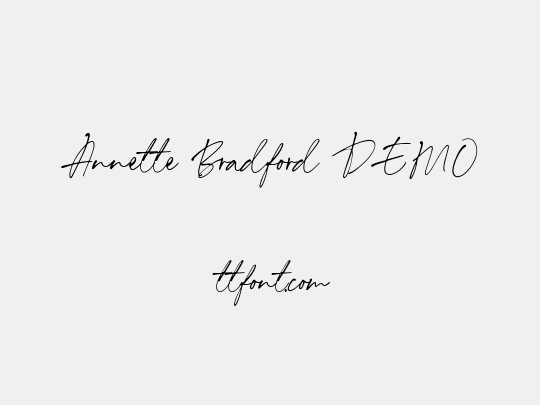 Annette Bradford DEMO
ttfont.com